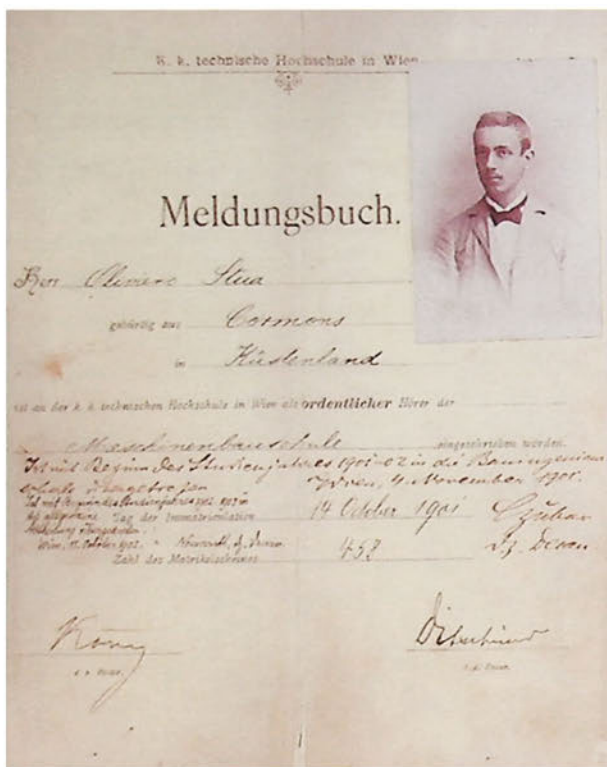 K. k. technische Hochschule in Wien
Meldungsbuch.
Herr Oliviero Stua
gebürtig aus Cormons
in Küstenland
ist an der k. k. technischen Hochschule in Wien als ordentlicher Hörer der
Maschinenbauschule eingeschrieben worden.
Ist mit Beginn des Studienjahres 1901-02 in die Bauingenieur
schule übergetreten Wien, 4. November 1901.
Ist mit Beginn des Studienjahres 1902-1903 in
die allgemeine Tag der Immatrikulation 14 October 1901 Czuber
Abteilung übergetreten
Wien, October 1902. Zahl des Matrikelscheines 458 d. z. Decan
König
d. z. Decan.
d. z. Rector.